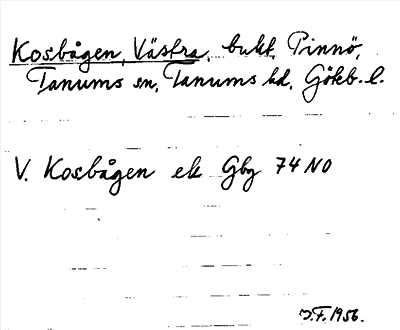 Kosbågen, Västra, bukt, Pinnö,
Tanums sn, Tanums hd, Götkb. l.
V. Kosbågen ek Gbg 74 NO
J.F. 1956.